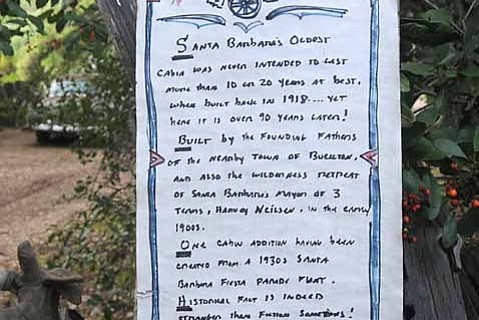 Santa Barbara's Oldest
Cabin was never intended to last
more than 10 or 20 years at best,
when built back in 1918.... yet
here it is over 90 years later!
Built by the Founding Fathers
of the nearby town of Buellton,
and also the wilderness retreat
of Santa Barbara's Mayor of 3
terms, Harvey Neilsen, in the early
1900s.
One cabin addition having been
created from a 1930s Santa
Barbara Fiesta Parade float.
Historical fact is indeed
stranger then fiction sometimes!